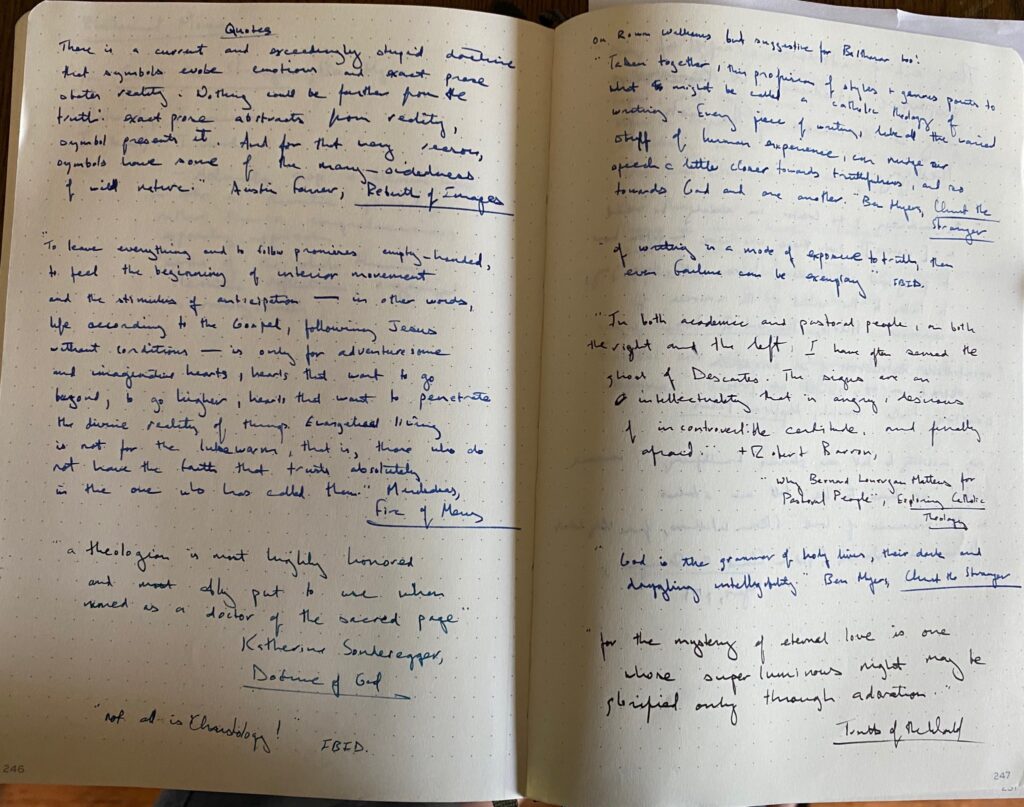 Quotes
There is a current and exceedingly stupid doctrine
that symbols evoke emotions and exact prose
states reality. Nothing could be further from the
truth: exact prose abstracts from reality,
symbol presents it. And for that very reason,
symbols have some of the many-sidedness
of wild nature." Austin Farrer, Rebirth of Images
"To leave everything and to follow promises empty-handed,
to feel the beginning of interior movement
and the stimulus of anticipation — in other words,
life according to the Gospel, following Jesus
without conditions — is only for adventuresome
and imaginative hearts, hearts that want to go
beyond, to go higher, hearts that want to penetrate
the divine reality of things. Evangelical living
is not for the lukewarm, that is, those who do
not have the faith that trusts absolutely
in the one who has called them."
Fire of Mercy
"a theologian is most highly honored
and most ably put to use when
named as a doctor of the sacred page"
Katherine Sonderegger,
Doctrine of God
"not all is Christology!"
IBID.
on Rowan Williams but suggestive for Balthasar too:
"Taken together, this profusion of styles + genres points to
what might be called a catholic theology of
writing. Every piece of writing, like all the varied
stuff of human experience, can nudge our
speech a little closer towards truthfulness, and so
towards God and one another." Ben Myers, Christ the
Stranger
"if writing is a mode of exposure to truth, then
even failure can be exemplary" IBID.
"In both academic and pastoral people, on both
the right and the left, I have often sensed the
ghost of Descartes. The signs are an
intellectuality that is angry, desirous
of incontrovertible certitude, and finally
afraid." +Robert Barron,
"Why Bernard Lonergan Matters for
Pastoral People", Exploring Catholic
Theology
"God is the grammar of holy lives, their dark and
dazzling intelligibility." Ben Myers, Christ the Stranger
"for the mystery of eternal love is one
whose super luminous night may be
glorified only through adoration."
Truth of the World
246
247